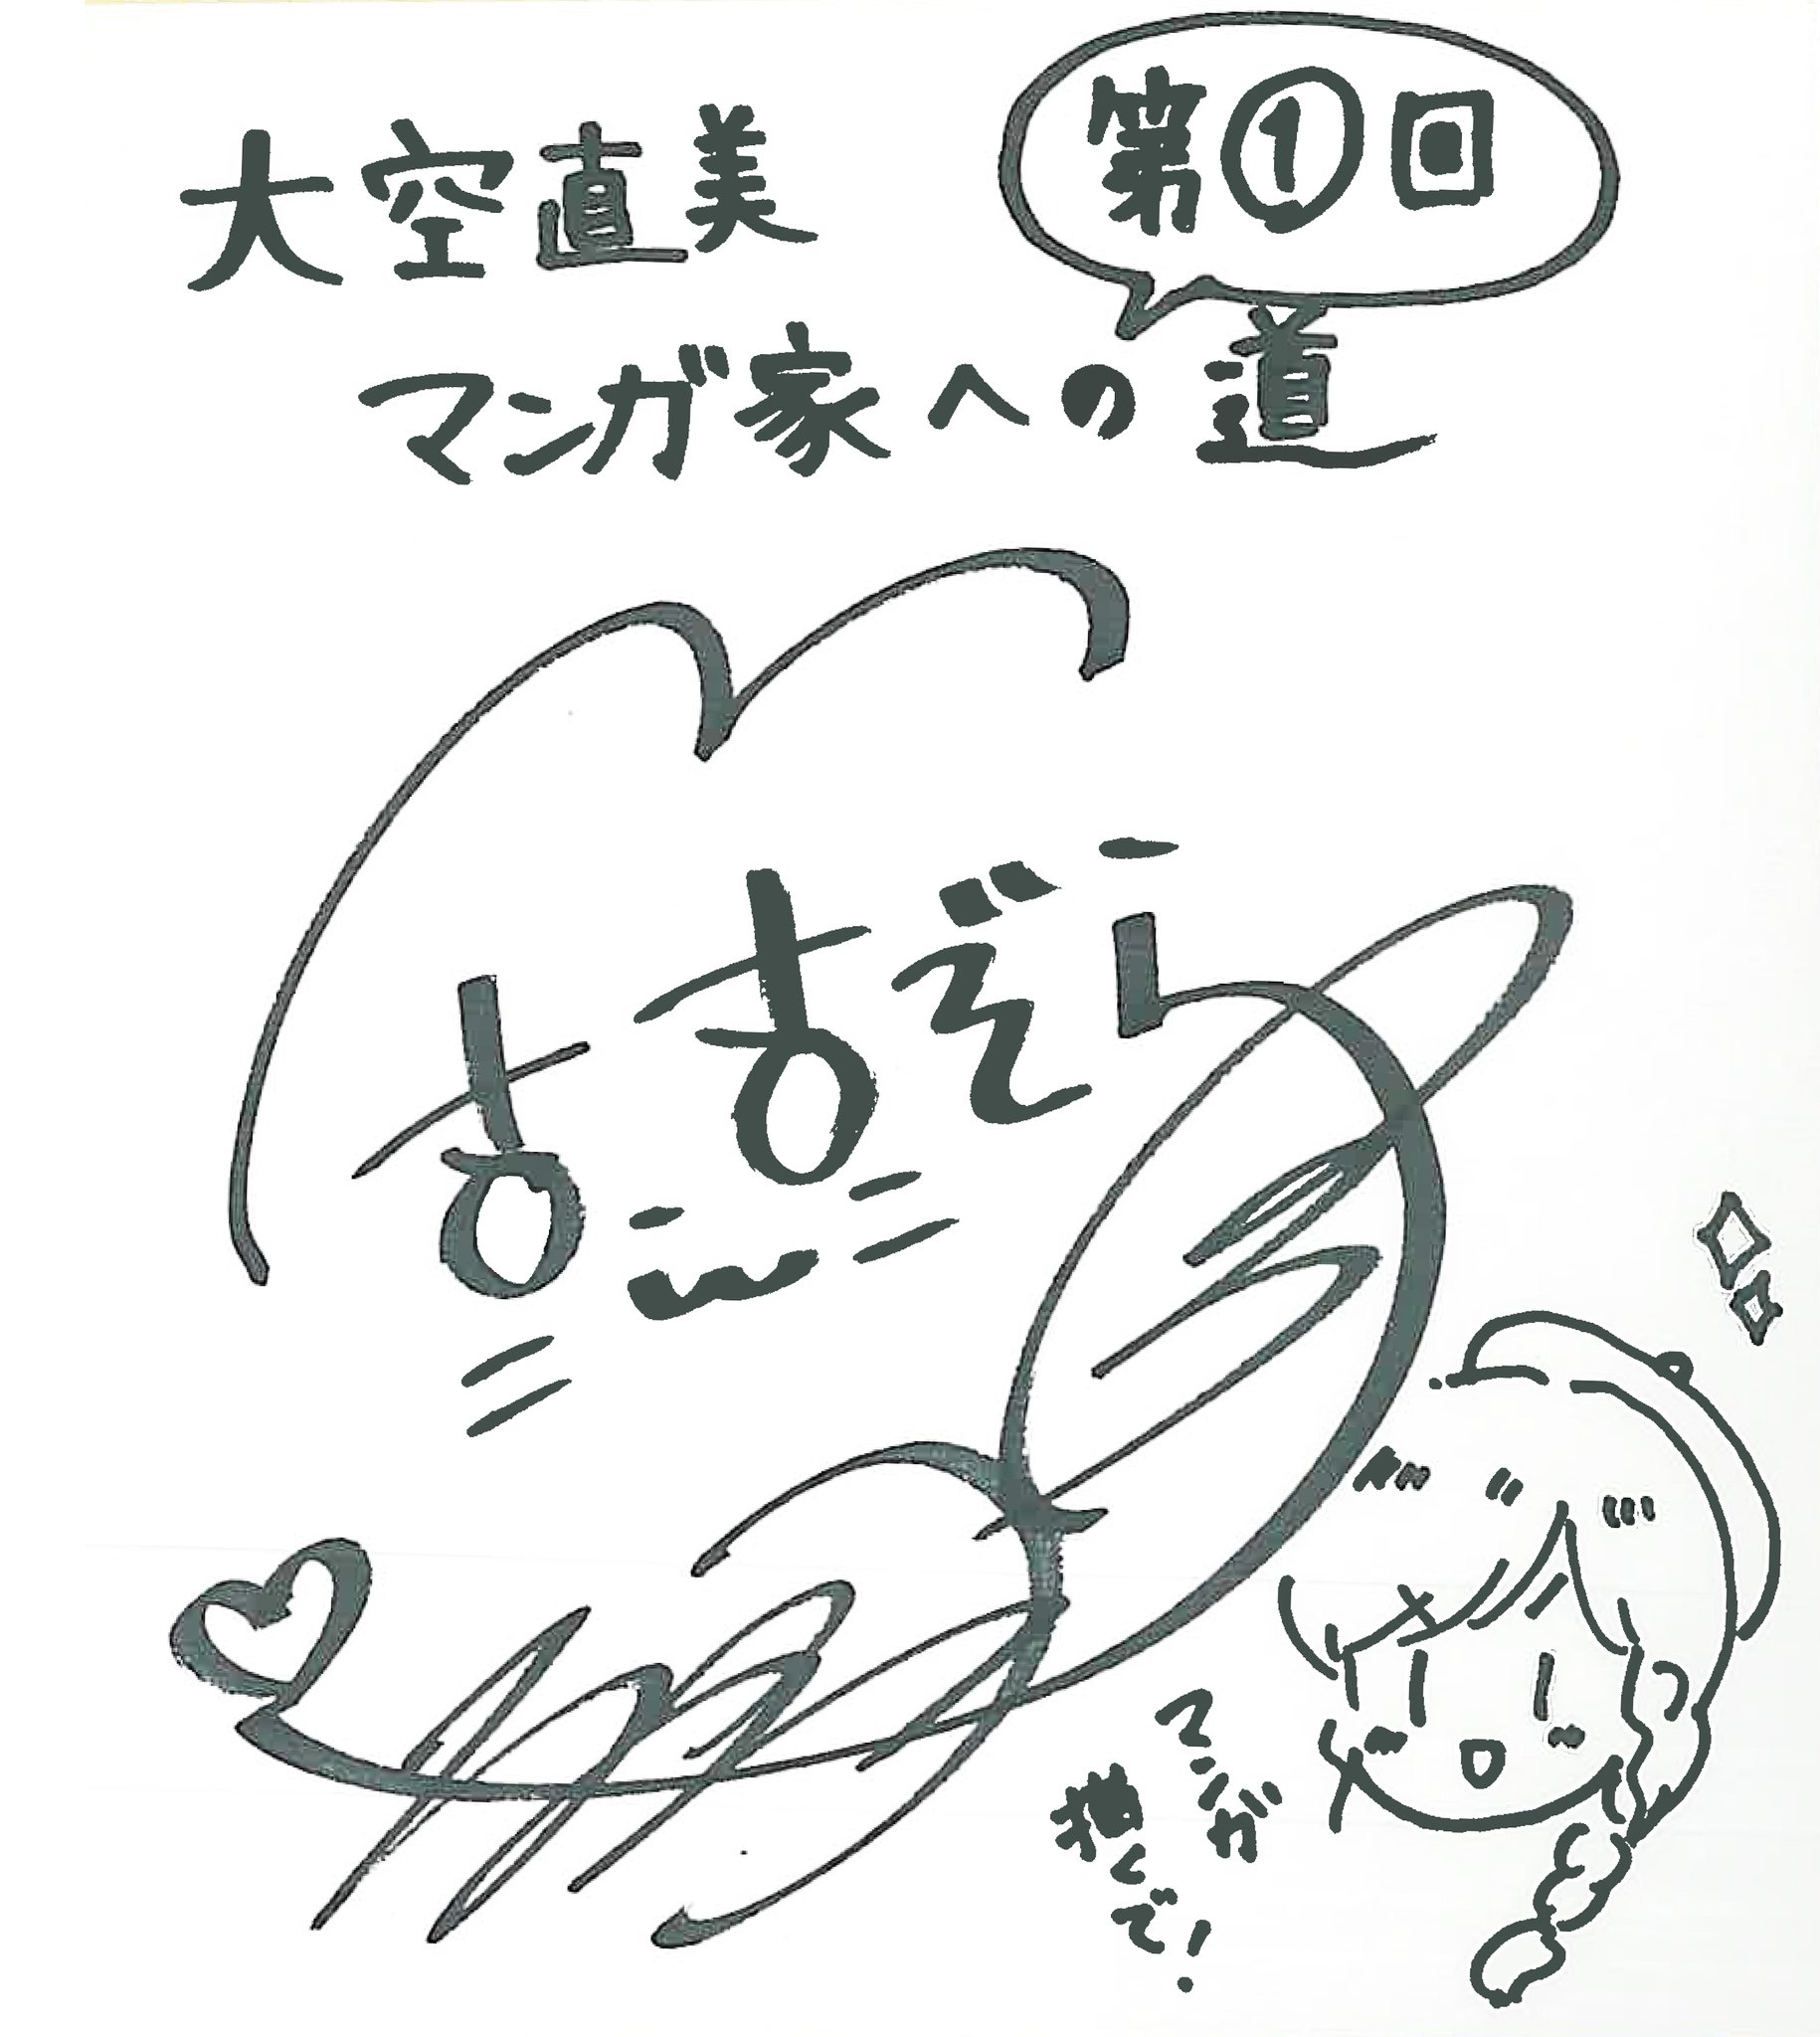 大空直美
第①回
マンガ家への道
おおぞら
マンガ
描くで!